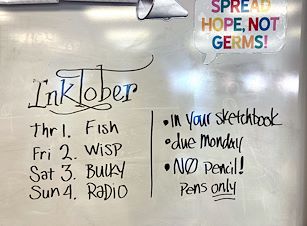 SPREAD
HOPE, NOT
GERMS!
InkTober
Thr 1. Fish
Fri 2. Wisp
Sat 3. BULKY
Sun 4. RADIO
• in your sketchbook
• due monday
• NO Pencil!
Pens only